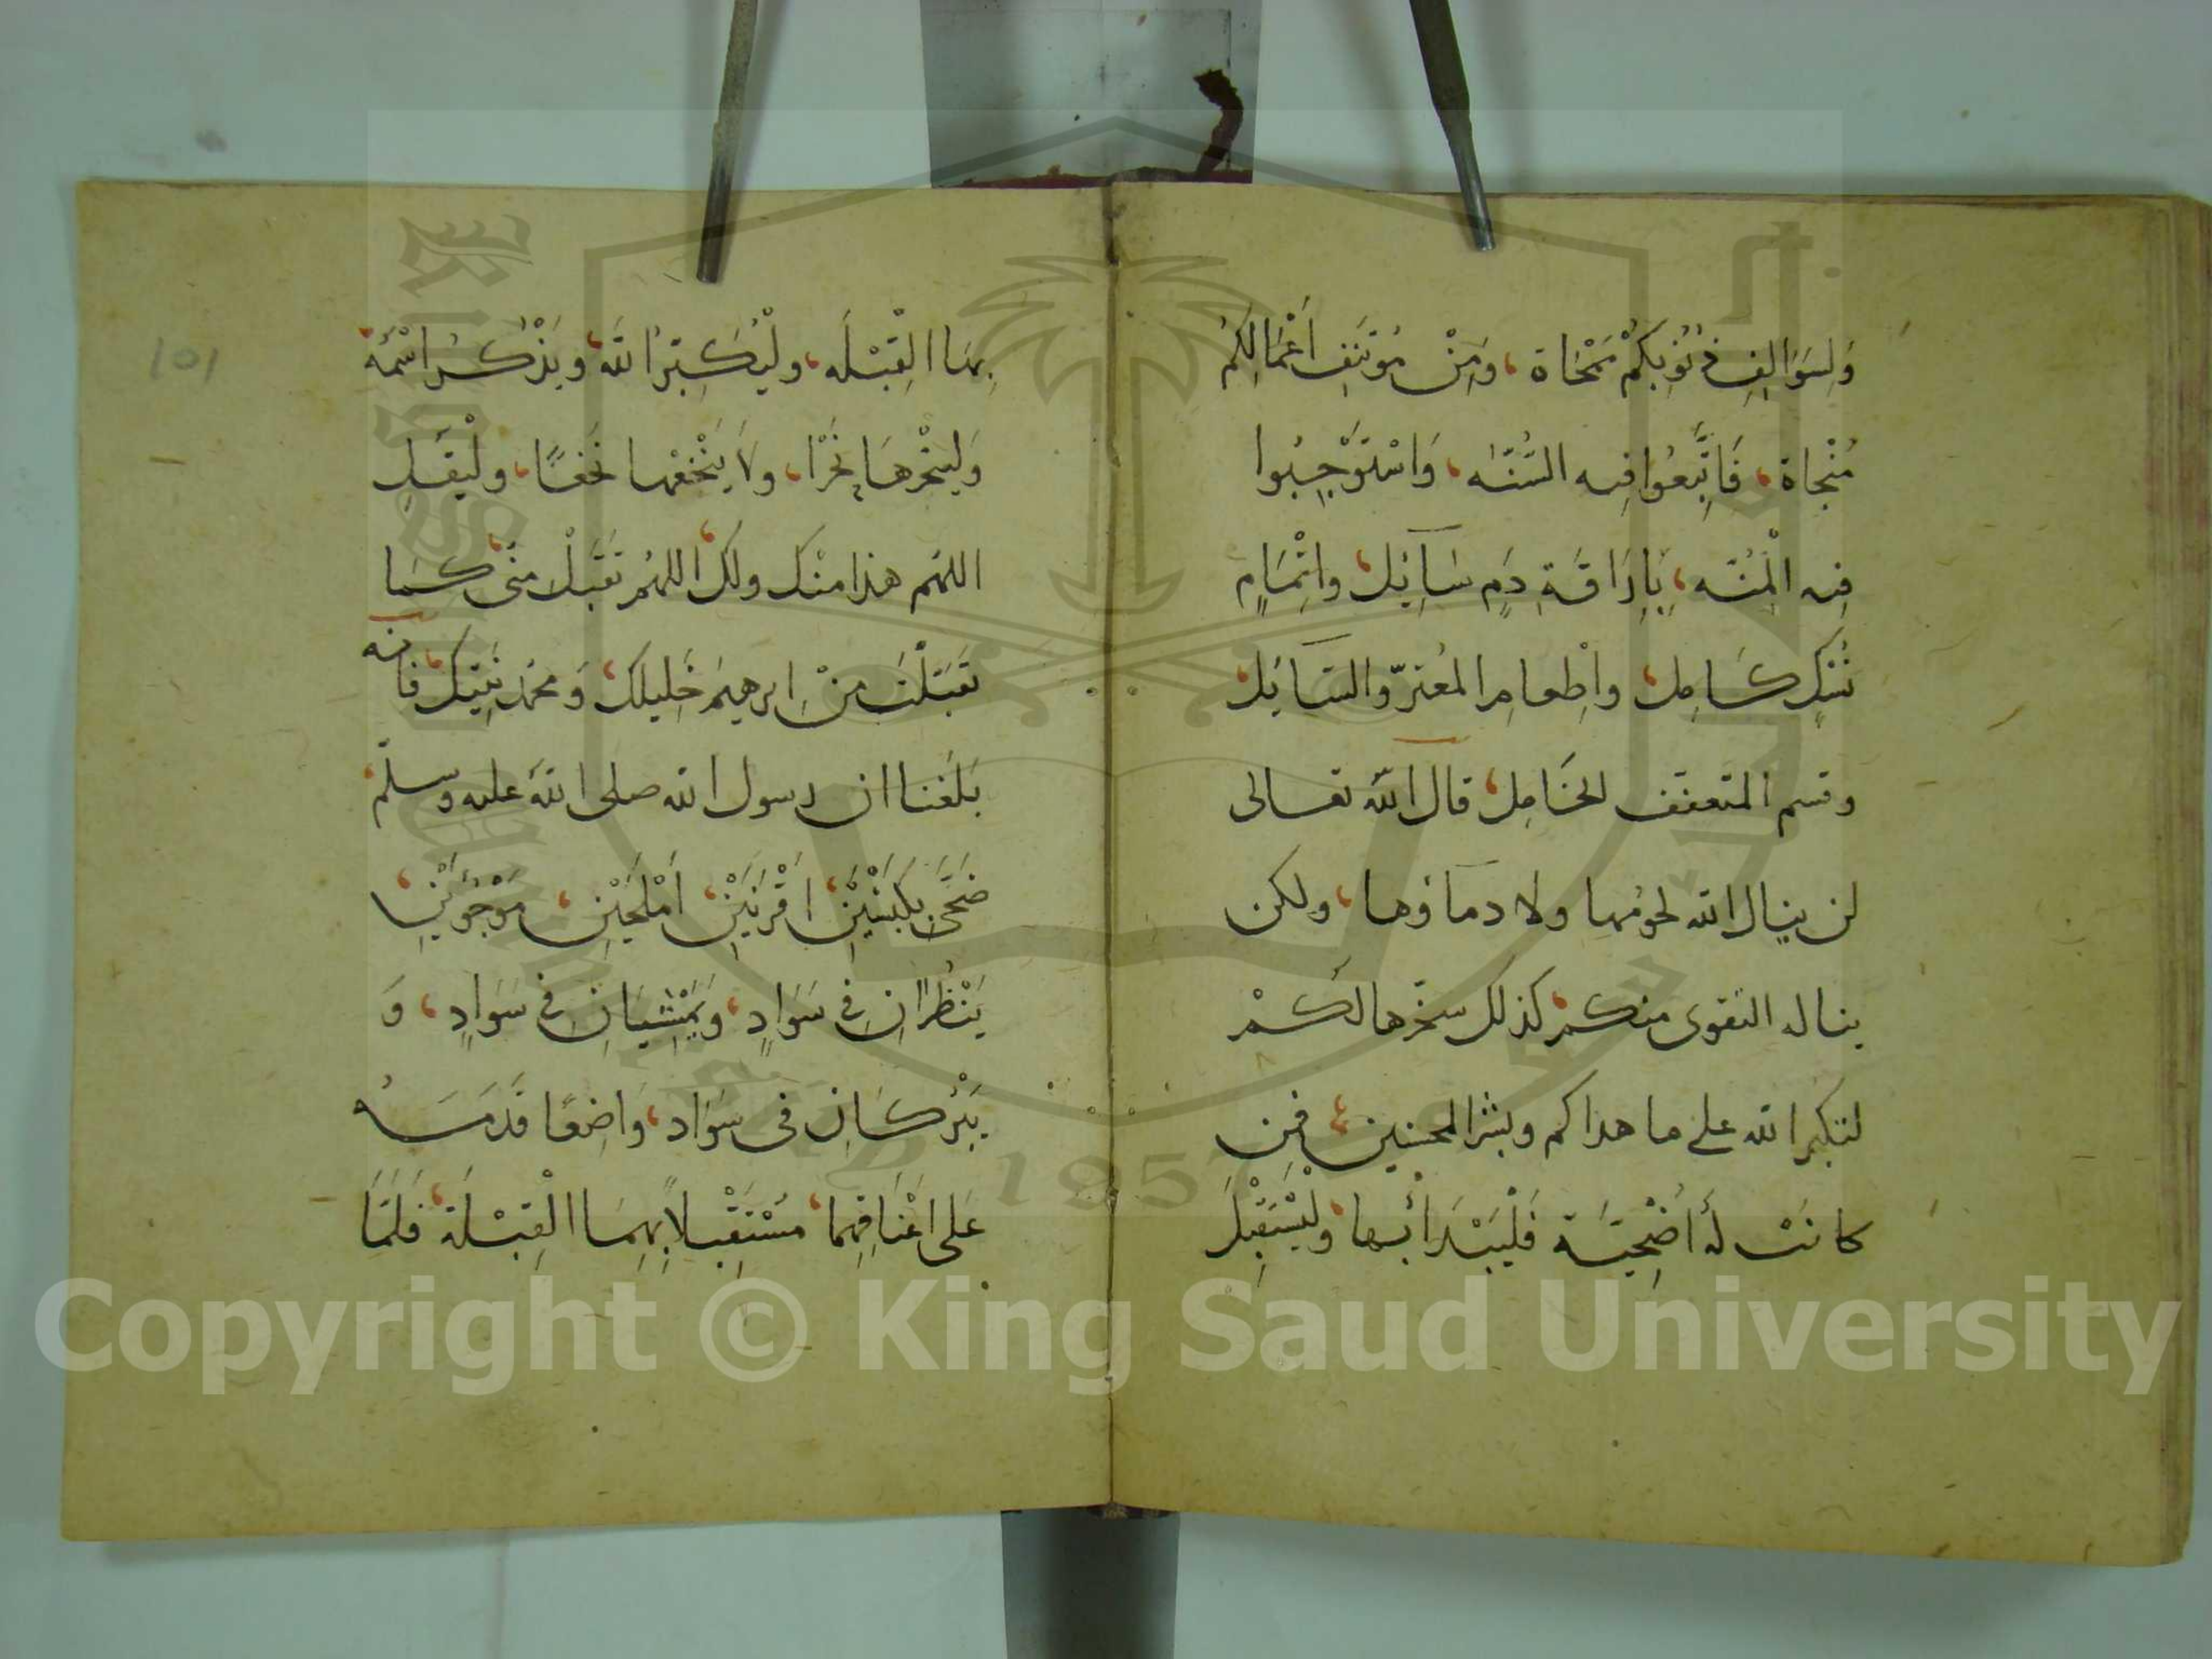 وَلِسَوَالِفِ ذُنُوبِكُمْ مَمْحَاة، وَمِنْ مُؤْتَنَفِ أَعْمَالِكُمُ
مُنْجَاة، فَاتَّبِعُوا فِيهِ السُّنَّه، وَاسْتَوْجِبُوا
فِيهِ الْمِنَّه، بِإِرَاقَةِ دَمٍ سَآئِل، وَإِتْمَامِ
نُسُكٍ كَامِل، وإِطْعامِ المُعْتَرّ والسَّآئِل،
وقسم المتعفف الخَامِل، قال الله تعالى
لن ينال الله لحُومها ولا دمآؤها، ولكن
يناله التقوى منكم، كذلك سخّرها لَكُمْ
لتكبروا الله على ما هداكم وبشر المحسنين، فمن
كانَتْ لَهُ أُضْحِيَّة فَلْيَبْدَأْ بها، ولْيَسْتَقْبِلْ
101
بِهَا الْقِبْلَه، ولْيُكَبِّرُ اللَّه، ويَذْكُر اسْمَهُ،
وَلينْحَرْهَا نَحْرًا، ولا يَنْخَعْها نَخعًا، ولْيَقُل
اللهُم هذا منْك ولك، اللهُم تَقَبَّلْ منّى، كَما
تَقَبَّلْتَ مِنْ إبرهيمَ خَلِيلِك، وَمحمّد نَبِيّك، فانه
بَلَغَنا ان رسول الله صلى الله عليه وسلّم،
ضَحَّى بِكَبْشَيْنِ، أَقْرَنَيْنِ، أَمْلَحَيْنِ، مَوْجُوئَيْنِ،
يَنْظُرَانِ فِي سَوَادٍ، وَيَمْشِيَانِ فِي سَوَادٍ، وَ
يَبْرُكَانِ فى سَوَاد، وَاضِعًا قَدَمَهُ
عَلى أَعْنَاقِهِما، مُسْتَقْبِلاً بِهِمَا الْقِبْلَة، فَلَمَّا
Copyright © King Saud University
1957